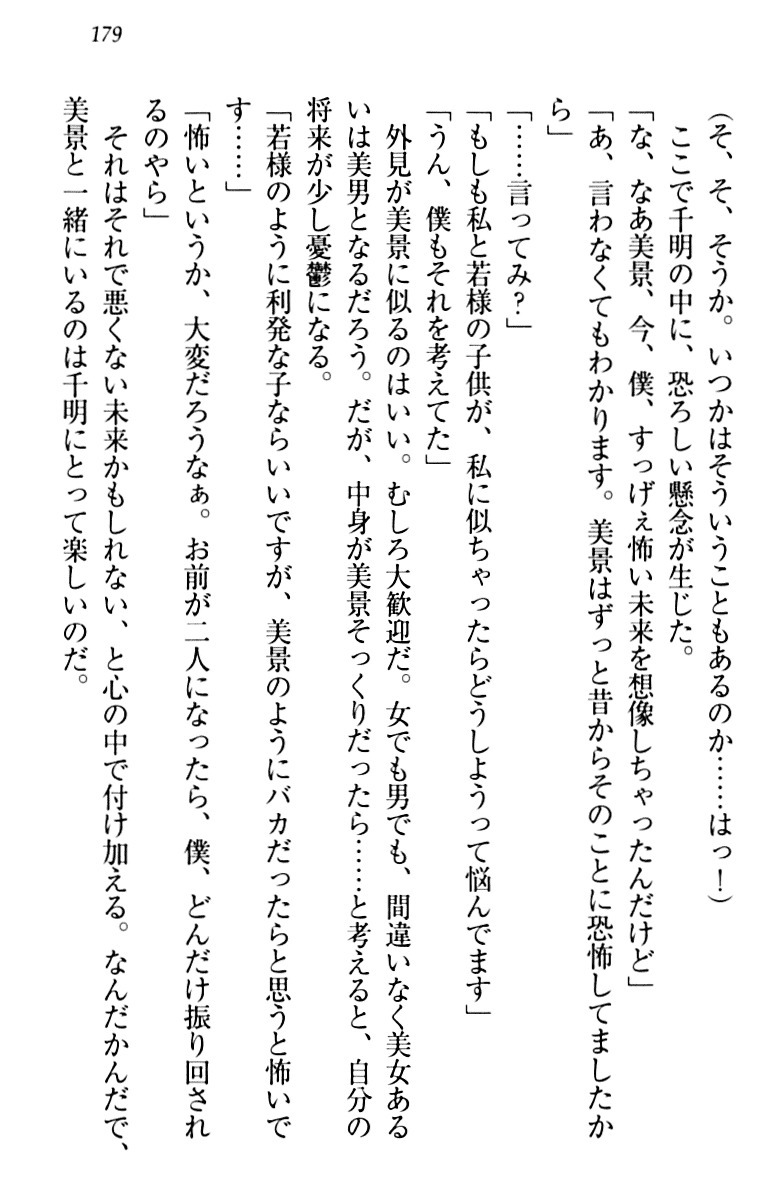 179
(そ、そ、そうか。いつかはそういうこともあるのか……はっ！)
　ここで千明の中に、恐ろしい懸念が生じた。
「な、なあ美景、今、僕、すっげぇ怖い未来を想像しちゃったんだけど」
「あ、言わなくてもわかります。美景はずっと昔からそのことに恐怖してましたか
ら」
「……言ってみ？」
「もしも私と若様の子供が、私に似ちゃったらどうしようって悩んでます」
「うん、僕もそれを考えてた」
　外見が美景に似るのはいい。むしろ大歓迎だ。女でも男でも、間違いなく美女ある
いは美男となるだろう。だが、中身が美景そっくりだったら……と考えると、自分の
将来が少し憂鬱になる。
「若様のように利発な子ならいいですが、美景のようにバカだったらと思うと怖いで
す……」
「怖いというか、大変だろうなぁ。お前が二人になったら、僕、どんだけ振り回され
るのやら」
　それはそれで悪くない未来かもしれない、と心の中で付け加える。なんだかんだで、
美景と一緒にいるのは千明にとって楽しいのだ。